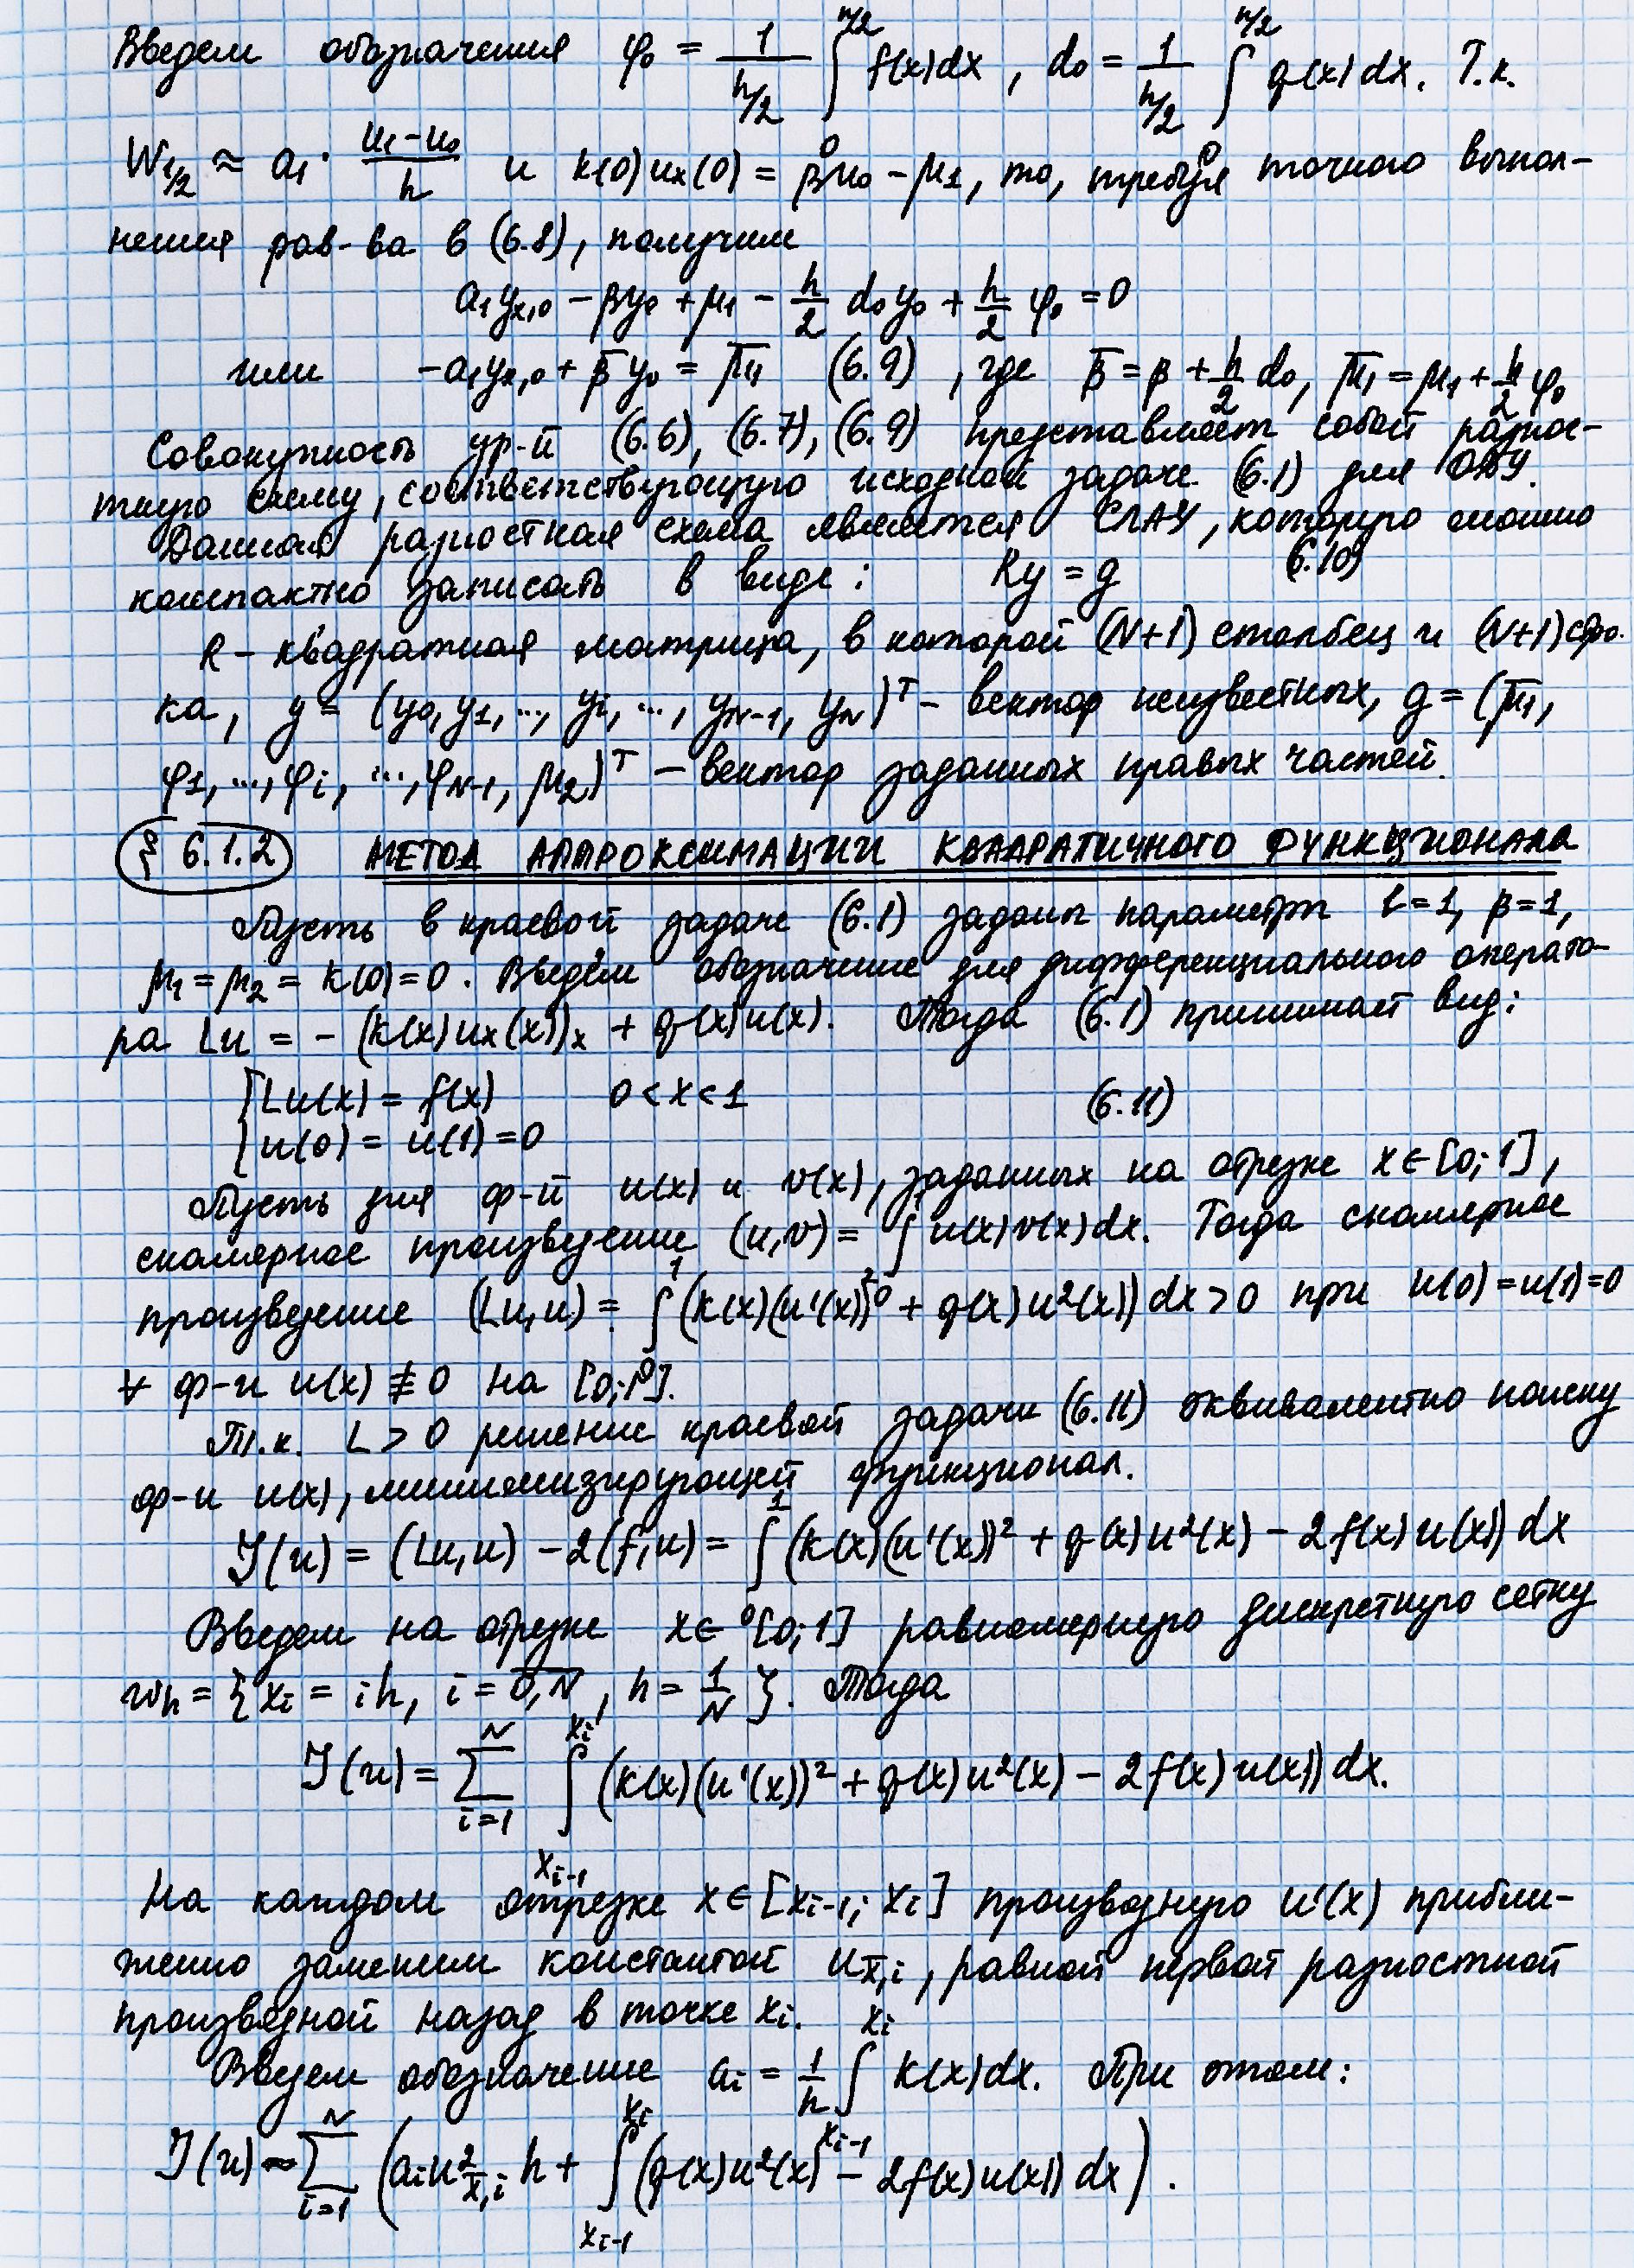 Введем обозначения φ₀ = 1/(h/2) ∫₀^{h/2} f(x)dx, d₀ = 1/(h/2) ∫₀^{h/2} q(x)dx. Т.к.
W_{1/2} ≈ a₁ · (u₁-u₀)/h и k(0)uₓ(0) = βu₀ - μ₁, то, требуя точного выпол-
нения рав-ва в (6.8), получим
a₁y_{x,0} - βy₀ + μ₁ - h/2 d₀y₀ + h/2 φ₀ = 0
или -a₁y_{x,0} + β̅y₀ = μ̅₁ (6.9), где β̅ = β + h/2 d₀, μ̅₁ = μ₁ + h/2 φ₀
Совокупность ур-й (6.6), (6.7), (6.9) представляет собой разнос-
тную схему, соответствующую исходной задаче (6.1) для ОДУ.
Данная разностная схема является СЛАУ, которую можно
компактно записать в виде: Ry = g (6.10)
R - квадратная матрица, в которой (N+1) столбец и (N+1) стро-
ка, y = (y₀, y₁, ..., yᵢ, ..., y_{N-1}, y_N)ᵀ - вектор неизвестных, g = (μ̅₁,
φ₁, ..., φᵢ, ..., φ_{N-1}, μ₂)ᵀ - вектор заданных правых частей.
§ 6.1.2 МЕТОД АППРОКСИМАЦИИ КВАДРАТИЧНОГО ФУНКЦИОНАЛА
Пусть в краевой задаче (6.1) заданы параметры l=1, β=1,
μ₁ = μ₂ = k(0) = 0. Введём обозначение для дифференциального операто-
ра Lu = - (k(x)uₓ(x))ₓ + q(x)u(x). Тогда (6.1) принимает вид:
{ Lu(x) = f(x) 0 < x < 1 (6.11)
{ u(0) = u(1) = 0
Пусть для ф-й u(x) и v(x), заданных на отрезке x ∈ [0; 1],
скалярное произведение (u,v) = ∫₀¹ u(x)v(x)dx. Тогда скалярное
произведение (Lu,u) = ∫₀¹ (k(x)(u'(x))² + q(x)u²(x)) dx > 0 при u(0) = u(1) = 0
∀ ф-и u(x) ≢ 0 на [0; 1].
Т.к. L > 0 решение краевой задачи (6.11) эквивалентно поиску
ф-и u(x), минимизирующей функционал.
J(u) = (Lu,u) - 2(f,u) = ∫₀¹ (k(x)(u'(x))² + q(x)u²(x) - 2f(x)u(x)) dx
Введем на отрезке x ∈ [0; 1] равномерную дискретную сетку
wₕ = { xᵢ = ih, i = 0,N̅, h = 1/N }. Тогда
J(u) = Σ_{i=1}^{N} ∫_{x_{i-1}}^{xᵢ} (k(x)(u'(x))² + q(x)u²(x) - 2f(x)u(x)) dx.
На каждом отрезке x ∈ [x_{i-1}; xᵢ] производную u'(x) прибли-
женно заменим константой u_{x̅,i}, равной первой разностной
производной назад в точке xᵢ.
Введем обозначение aᵢ = 1/h ∫_{x_{i-1}}^{xᵢ} k(x)dx. При этом:
J(u) ≈ Σ_{i=1}^{N} (aᵢu²_{x̅,i} h + ∫_{x_{i-1}}^{xᵢ} (q(x)u²(x) - 2f(x)u(x)) dx).